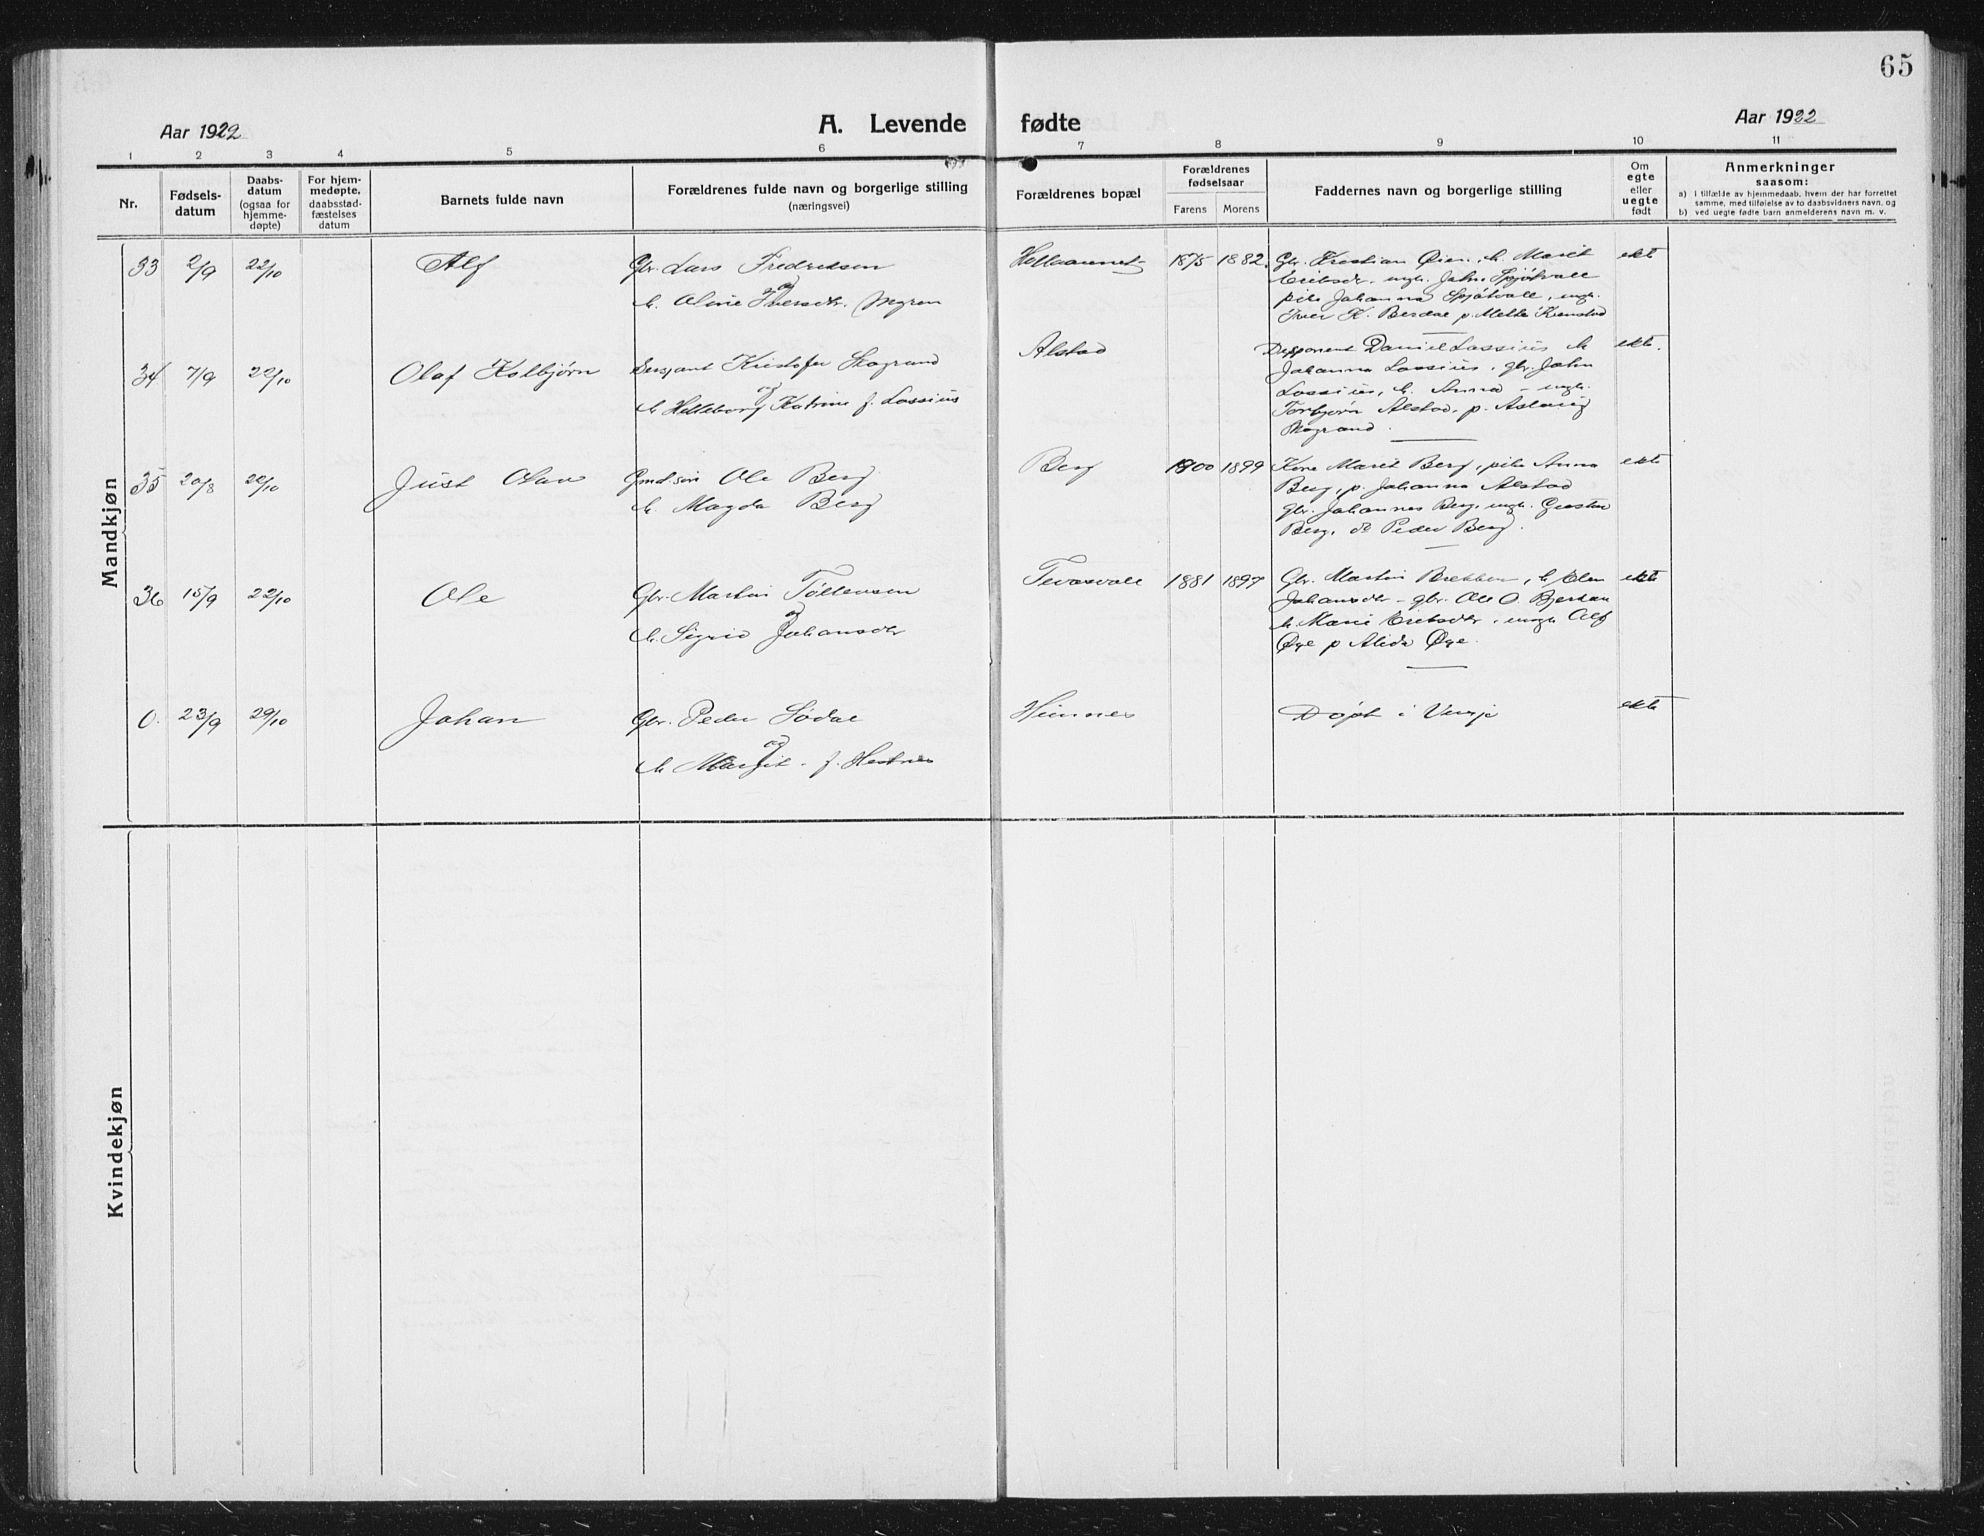 65
Aar 1922
A. Levende fødte
Aar 1922
1 2 3 4 5 6 7 8 9 10 11
Nr.
Fødsels-
datum
Daabs-
datum
(ogsaa for
hjemme-
døpte)
For hjem-
medøpte,
daabsstad-
fæstelses
datum
Barnets fulde navn
Forældrenes fulde navn og borgerlige stilling
(næringsvei)
Forældrenes bopæl
Forældrenes
fødselsaar
Farens Morens
Faddernes navn og borgerlige stilling
Om
egte
eller
uegte
født
Anmerkninger
saasom:
a) i tilfælde av hjemmedaab, hvem der har forrettet
samme, med tilføielse av to daabsvidners navn, og
b) ved uegte fødte barn anmelderens navn m. v.
Mandkjøn
33 2/9 22/10 Alf
Gbr. Lars Fredriksen
og
h. Oline Iversdtr. Myran
1875 1882
Gbr. Kristian Øien, h. Marit
Eriksdr. ungk. John Spjøtvoll
pike Johanna Spjøtvoll, ungk.
Iver K. Berdal p. Mette
ekte
34 7/9 22/10 Olaf Kolbjørn
Sersjant Kristofer Skogrand
og
h. Helleborg Katrine f. Lossius
Alstad
Disponent Daniel Lossius h.
Johanna Lossius, gbr. John
Lossius, h. Anna - ungk.
Torbjørn Alstad, p. Aslaug
Skogrand.
ekte.
35 20/8 22/10 Just Olav
Gmd.søn Ole Berg
h. Magda Berg
Berg
1900 1899
Kone Marit Berg, pike Anna
Berg, p. Johanna Alstad
gbr. Johannes Berg, ungk. Gustav
Berg, do Peder Berg.
ekte
36 15/9 22/10 Ole
Gbr. Martin Tøllevsen
og
h. Sigrid Johansdtr
1881 1897
Gbr. Martin Brekken, h. Elen
Johansdtr - gbr. Ole O.
h. Marie Eriksdtr, ungk. Alf
Øye p. Alida Øye.
ekte
0. 23/9 29/10 Johan
Gbr. Peder Sødal
og
h. Margit - f. Hestnes
Hemnes
Døpt i Vinje
ekte
Kvindekjøn